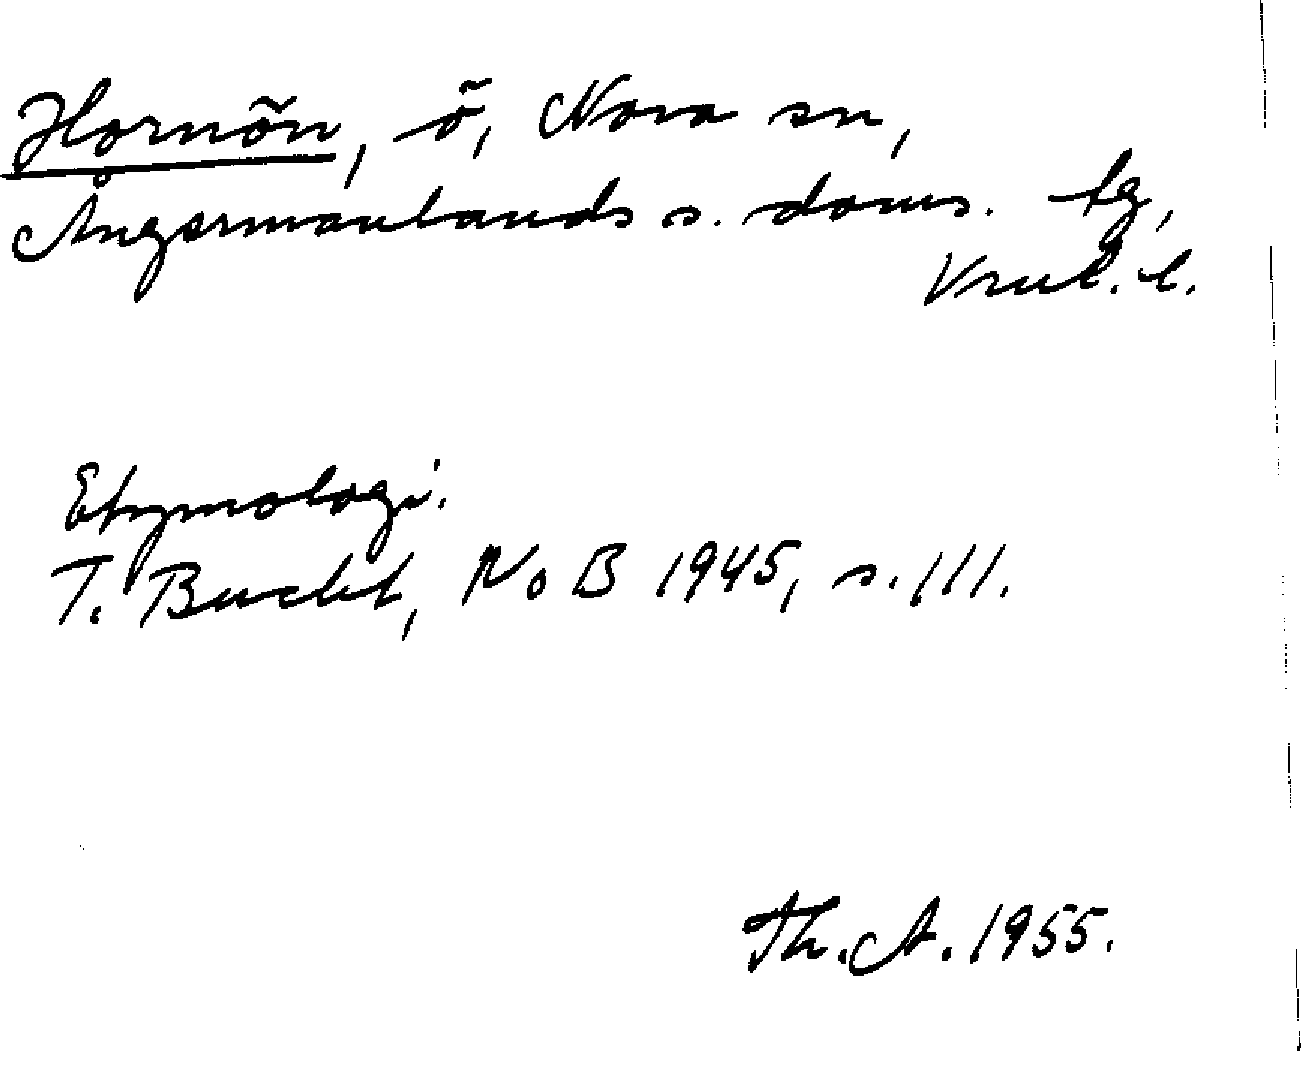 Hornön, ö, Nora sn,
Ångermanlands s. doms. tg,
Vrnl. l.
Etymologi.
T. Bucht, NoB 1945, s. 111.
Th. A. 1955.